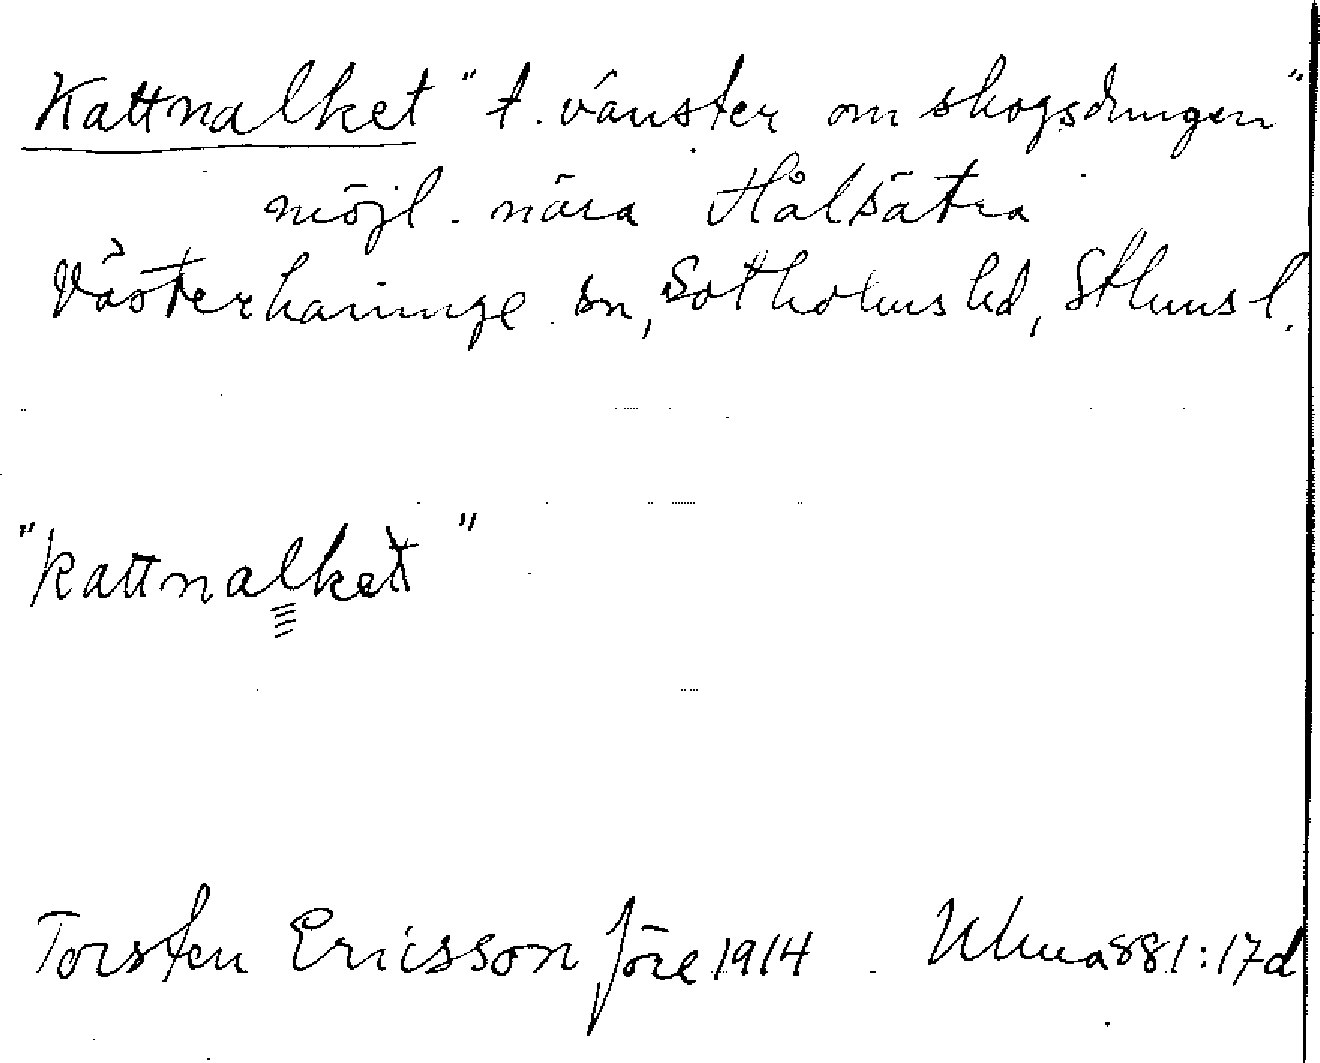 Kattnalket "t. vänster om skogsdungen"
möjl. nära Hålsätra
Västerhaninge sn, Sotholms hd, Sthms l.
"kattnalket"
Torsten Ericsson före 1914. Ulma 881:17d